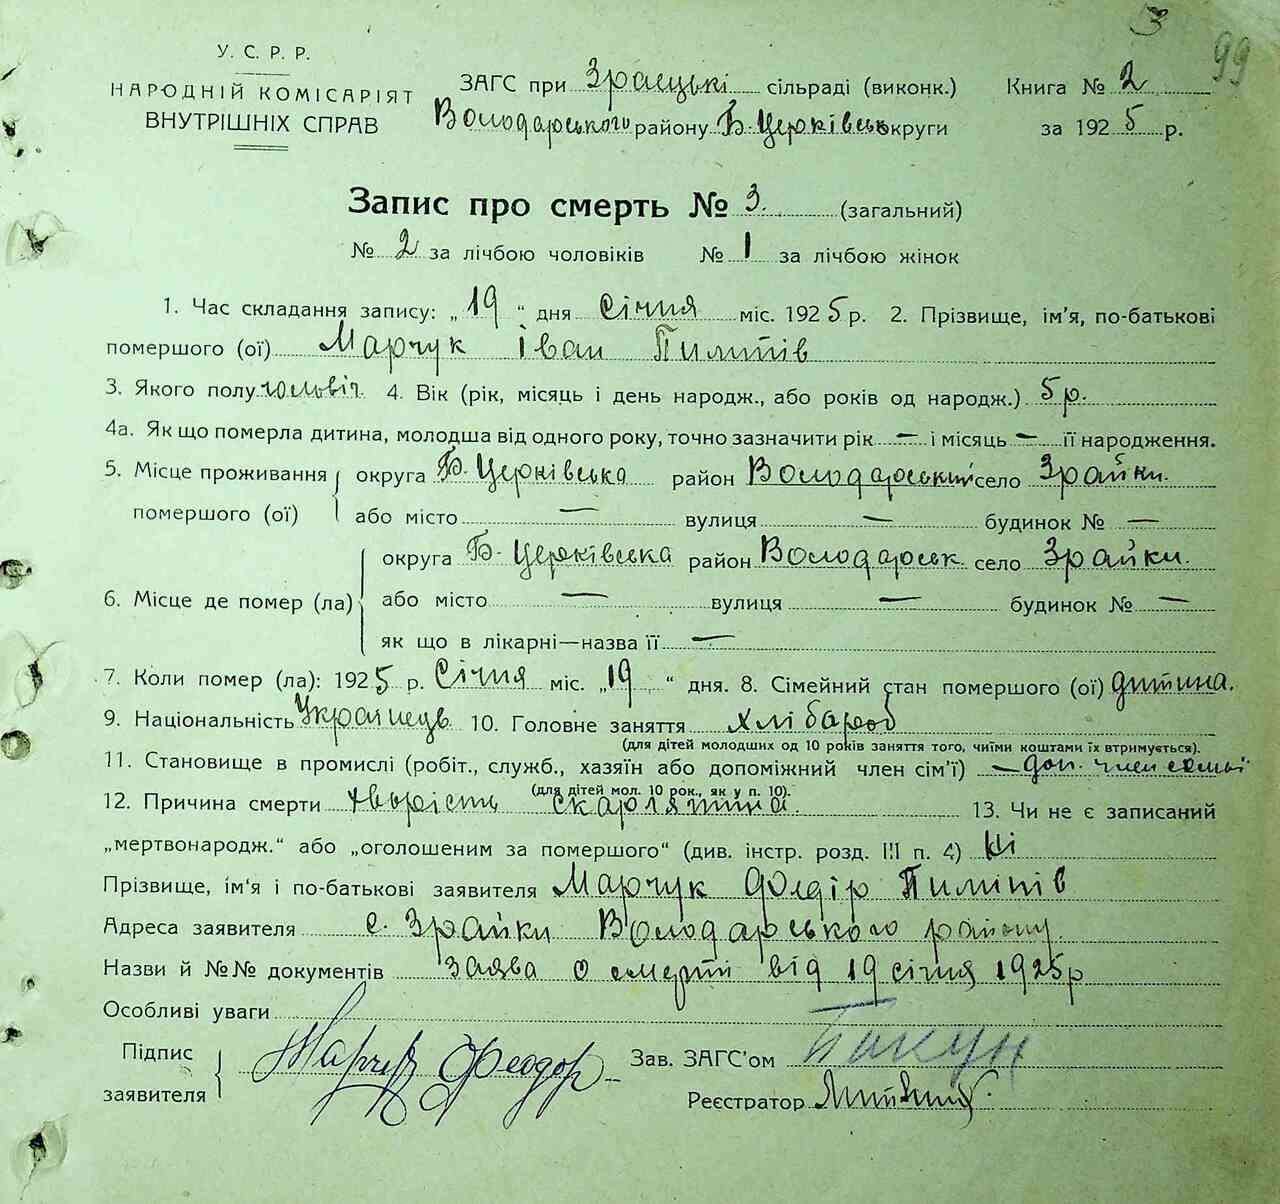 3
99
У. С. Р. Р.
НАРОДНІЙ КОМІСАРІЯТ
ВНУТРІШНІХ СПРАВ
ЗАГС при Зраицькі сільраді (виконк.)
Володарського району Б. Церківськ округи
Книга № 2
за 1925 р.
Запис про смерть № 3. (загальний)
№ 2 за лічбою чоловіків № 1 за лічбою жінок
1. Час складання запису: „19“ дня Січня міс. 1925 р. 2. Прізвище, ім'я, по-батькові
помершого (ої) Марчук Іван Пилипів
3. Якого полу чоловіч. 4. Вік (рік, місяць і день народж., або років од народж.) 5 р.
4а. Як що померла дитина, молодша від одного року, точно зазначити рік — і місяць — її народження.
5. Місце проживання помершого (ої) округа Б. Церківська район Володарський село Зрайки.
або місто — вулиця — будинок № —
6. Місце де помер (ла) округа Б. Церківська район Володарськ. село Зрайки.
або місто — вулиця — будинок № —
як що в лікарні—назва її —
7. Коли помер (ла): 1925 р. Січня міс. „19“ дня. 8. Сімейний стан помершого (ої) дитина.
9. Національність Украінець 10. Головне заняття хлібароб
(для дітей молодших од 10 років заняття того, чиїми коштами їх втримується).
11. Становище в промислі (робіт., служб., хазяїн або допоміжний член сім'ї) — доп. член семьї
(для дітей мол. 10 рок., як у п. 10).
12. Причина смерти хворість скарлятина. 13. Чи не є записаний
„мертвонародж.“ або „оголошеним за помершого“ (див. інстр. розд. III п. 4) Ні
Прізвище, ім'я і по-батькові заявителя Марчук Федір Пилипів
Адреса заявителя с. Зрайки Володарського району
Назви й №№ документів Заява о смерті від 19 січня 1925 р
Особливі уваги
Підпис заявителя Марчук Феодор
Зав. ЗАГС'ом Бакун
Реєстратор